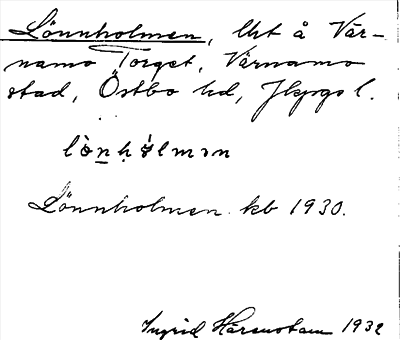 Lönnholmen, lht å Vär-
namo Torget, Värnamo
stad, Östbo hd, Jkpgs l.
lö̀nhólmən
Lönnholmen kb 1930.
Ingrid 1932